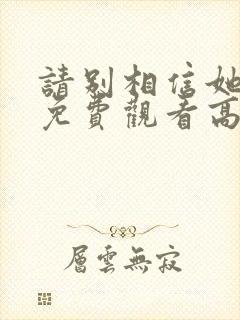 請別相信她
免費觀看高
層雲無寂